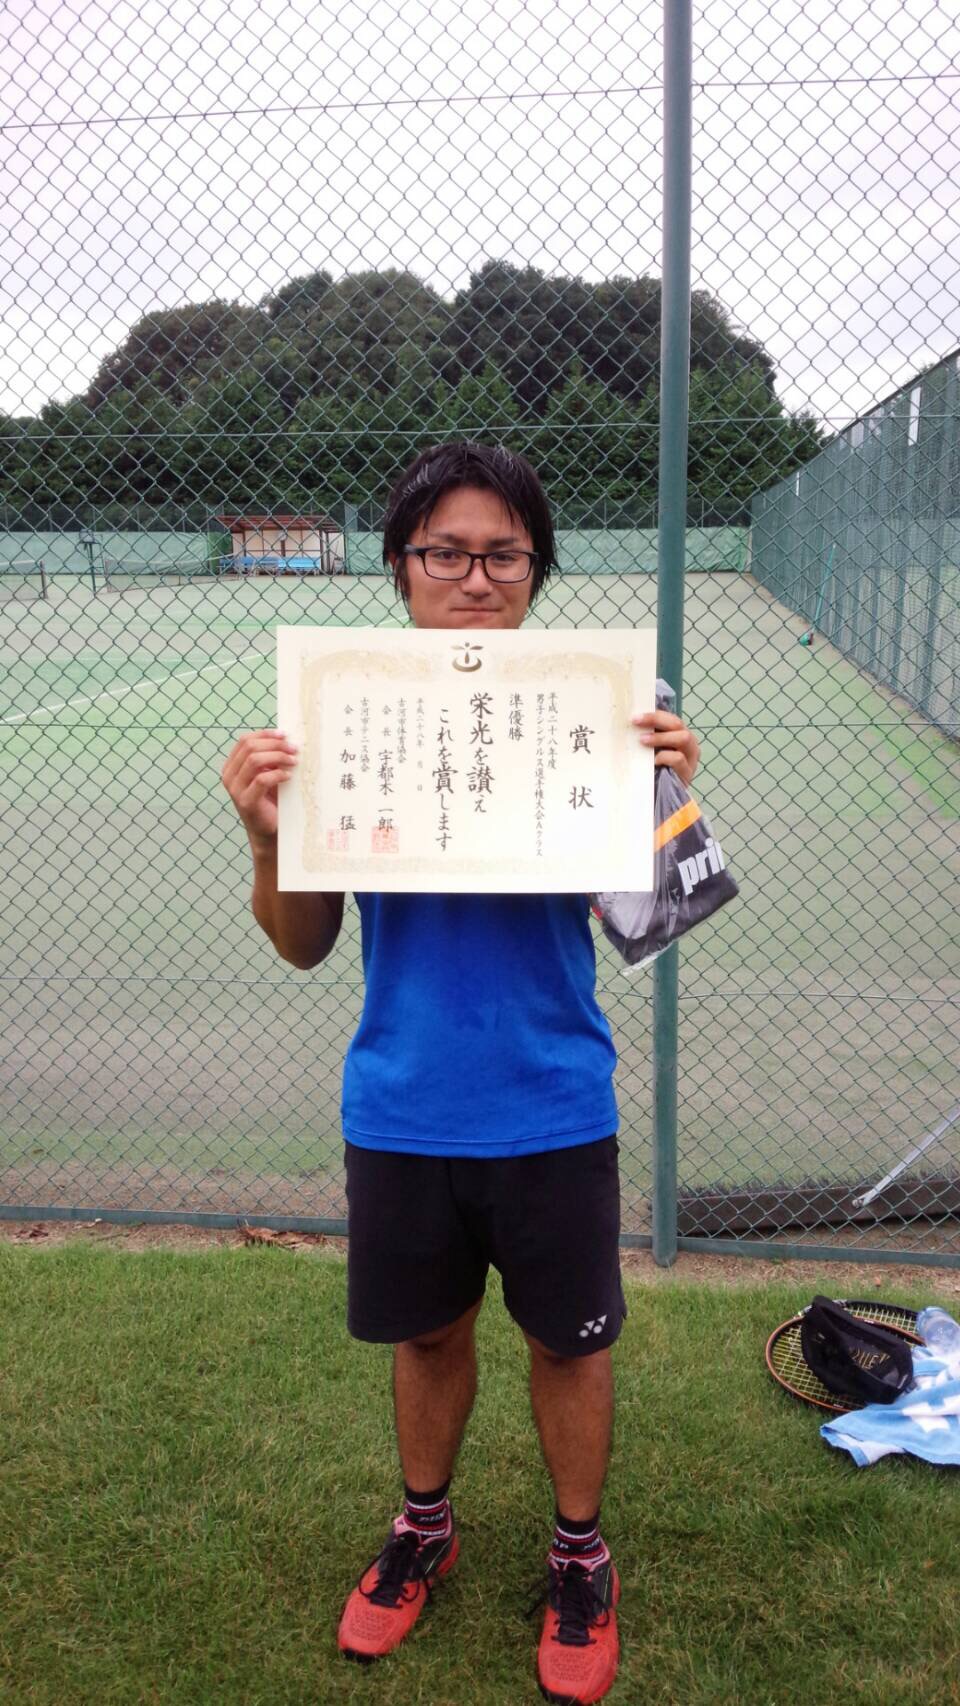 賞状
平成二十八年度
男子シングルス選手権大会Aクラス
準優勝
栄光を讃え
これを賞します
平成二十八年 月 日
古河市体育協会
会長 宇都木 一郎
古河市テニス協会
会長 加藤 猛
prin